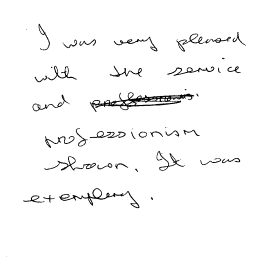 I was very pleased
with the service
and
professionism
shown. It was
exemplery.